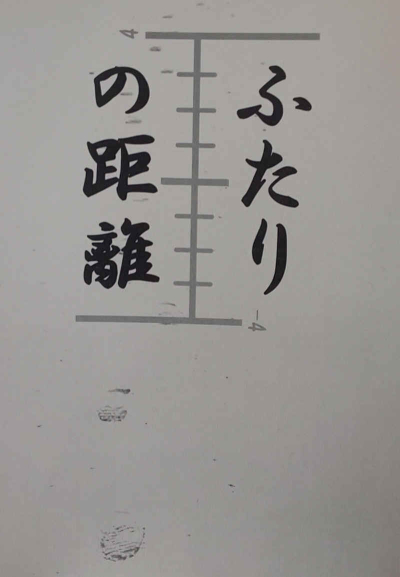 ふたり
の距離
4
-4